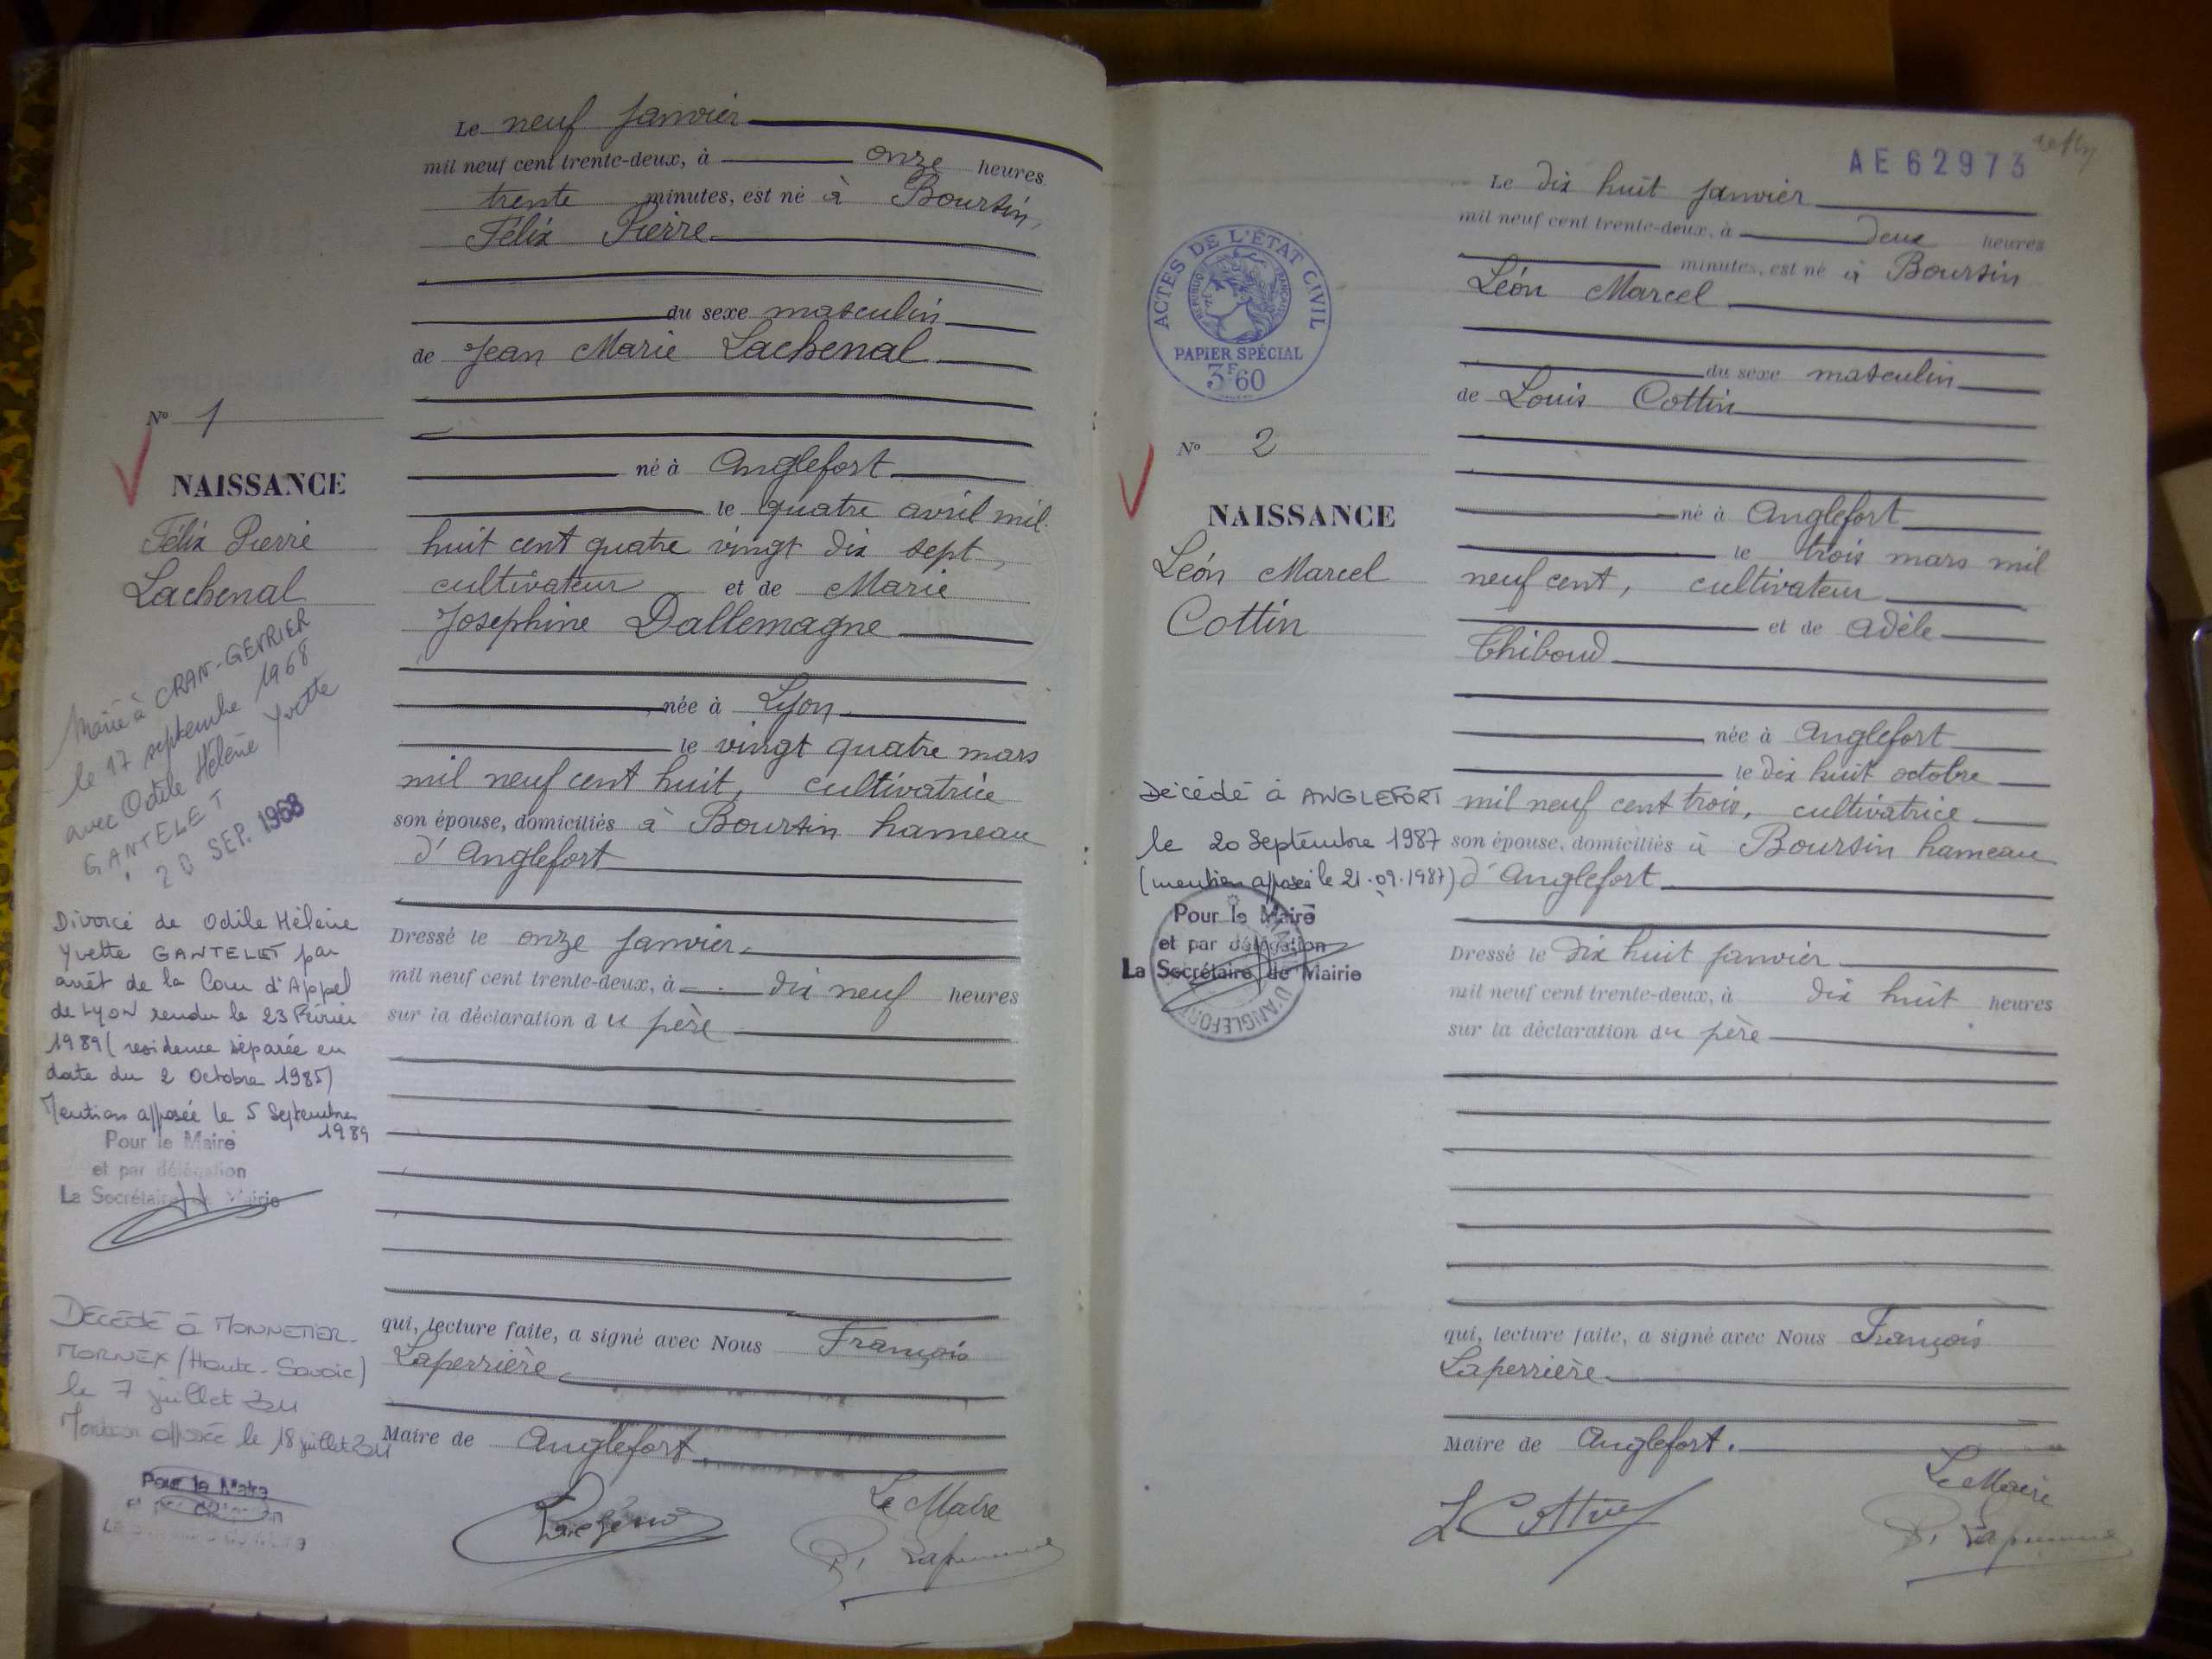 Le neuf janvier
mil neuf cent trente-deux, à onze heures
trente minutes, est né à Boursin,
Félix Pierre
du sexe masculin
de Jean Marie Lachenal
né à Anglefort
le quatre avril mil
huit cent quatre vingt dix sept,
cultivateur et de Marie
Josephine Dallemagne
née à Lyon
le vingt quatre mars
mil neuf cent huit, cultivatrice
son épouse, domiciliés à Boursin hameau
d'Anglefort
Dressé le onze janvier
mil neuf cent trente-deux, à dix neuf heures
sur la déclaration du père
qui, lecture faite, a signé avec Nous François
Laperrière
Maire de Anglefort
Le Maire
Nº 1
NAISSANCE
Félix Pierre
Lachenal
Marié à CRAN-GEVRIER
le 17 septembre 1968
avec Odile Hélène Yvette
GANTELET
20 SEP. 1968
Divorcé de Odile Hélène
Yvette GANTELET par
arrêt de la Cour d'Appel
de LYON rendu le 23 Février
1989 (residence séparée en
date du 2 Octobre 1985)
Mention apposée le 5 Septembre
1989
Pour le Maire
et par délégation
La Secrétaire de Mairie
DÉCÉDÉ à MONNETIER-
MORNEX (Haute-Savoie)
le 7 juillet 2011
Mention apposée le 18 juillet 2011
Pour le Maire
AE 62973
ACTES DE L'ÉTAT CIVIL
RÉPUBLIQUE FRANÇAISE
PAPIER SPÉCIAL
3F60
Nº 2
NAISSANCE
Léon Marcel
Cottin
Décédé à ANGLEFORT
le 20 Septembre 1987
(mention apposée le 21.09.1987)
Pour le Maire
et par délégation
La Secrétaire de Mairie
MAIRIE D'ANGLEFORT
Le dix huit janvier
mil neuf cent trente-deux, à deux heures
minutes, est né à Boursin
Léon Marcel
du sexe masculin
de Louis Cottin
né à Anglefort
le trois mars mil
neuf cent, cultivateur
et de Adèle
Thiboud
née à Anglefort
le dix huit octobre
mil neuf cent trois, cultivatrice
son épouse, domiciliés à Boursin hameau
d'Anglefort
Dressé le dix huit janvier
mil neuf cent trente-deux, à dix huit heures
sur la déclaration du père
qui, lecture faite, a signé avec Nous François
Laperrière
Maire de Anglefort.
Le Maire
L Cottin